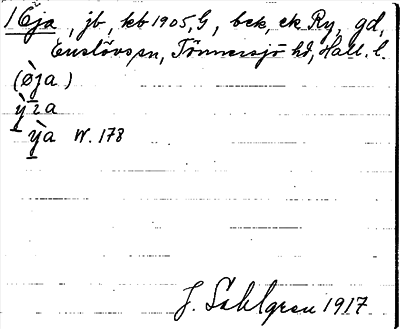 1 Öja, jb, kb 1905, G, bek, ek Ry, gd,
Enslövs sn, Tönnersjö hd, Hall. l.
(øja)
ỳɪa
ỳa W. 178
J. Sahlgren 1917